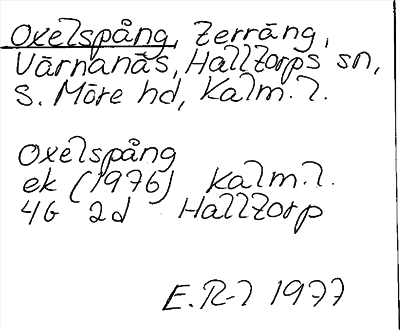 Oxelspång, Terräng,
Värnanäs, Halltorps sn,
S. Möre hd, Kalm. l.
Oxelspång
ek (1976) Kalm. l.
4G 2d Halltorp
E. R-l 1977